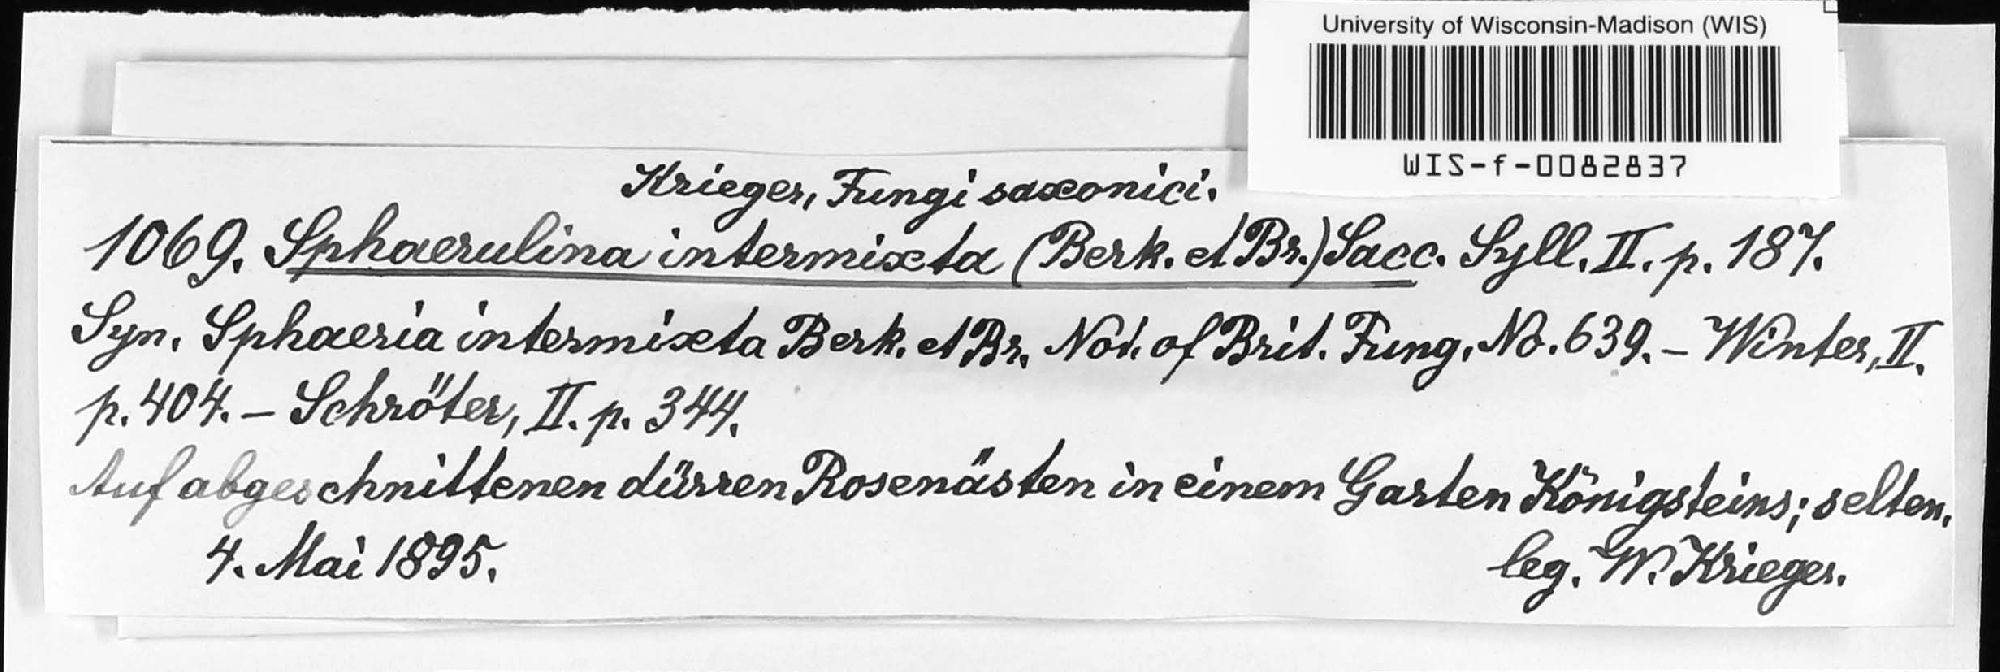 University of Wisconsin-Madison (WIS)
WIS-f-0082837
Krieger, Fungi saxonici.
1069. Sphaerulina intermixta (Berk. et Br.) Sacc. Syll. II. p. 187.
Syn. Sphaeria intermixta Berk. et Br. Not. of Brit. Fung. No. 639. – Winter, II.
p. 404. – Schröter, II. p. 344.
Auf abgeschnittenen dürren Rosenästen in einem Garten Königsteins; selten.
4. Mai 1895.
leg. W. Krieger.